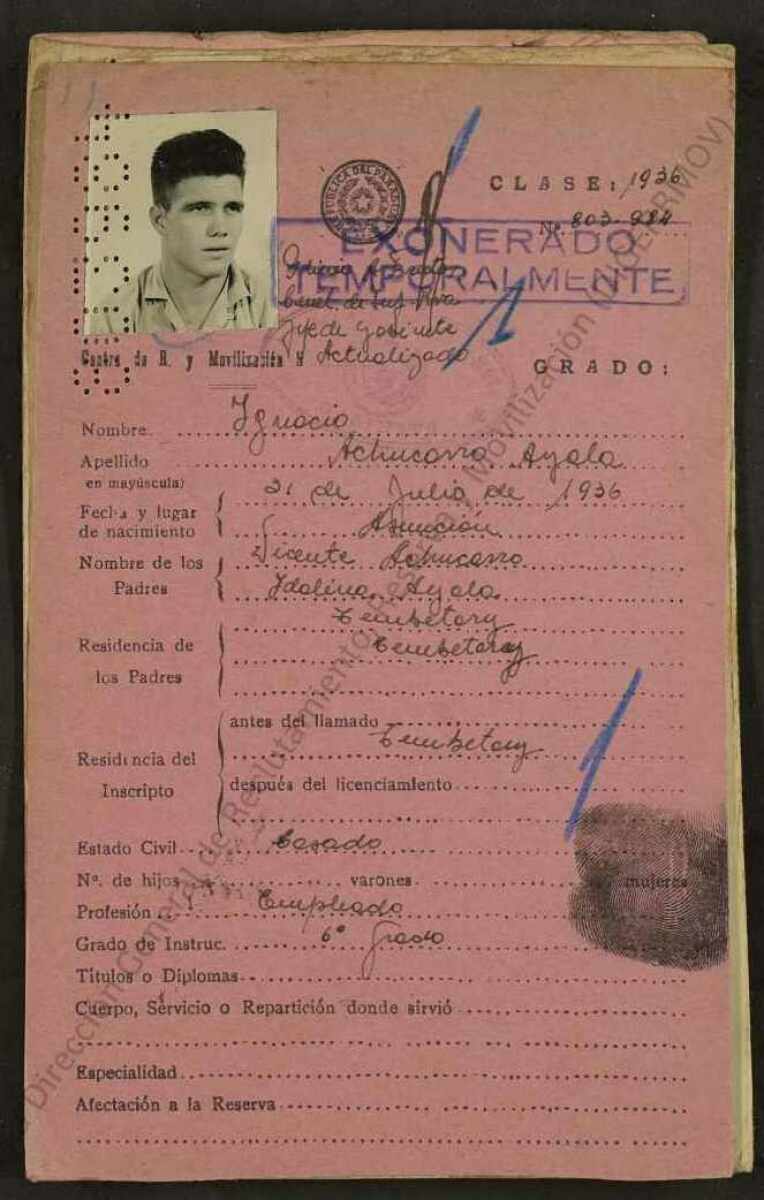 REPUBLICA DEL PARAGUAY
CLASE: 1936
Nº. 803.984
EXONERADO
TEMPORALMENTE
Jefe de Gabinete
Actualizado
Centro de R. y Movilización N
GRADO:
Nombre Ignacio
Apellido Achucarro Ayala
en mayúscula)
Fecha y lugar de nacimiento 31 de Julio de 1936
Asunción
Nombre de los Padres Vicente Achucarro
Idalina Ayala
Tembetary
Residencia de los Padres Tembetary
Residencia del Inscripto antes del llamado Tembetary
después del licenciamiento
Estado Civil Casado
Nº. de hijos varones mujeres
Profesión Empleado
Grado de Instruc. 6º grado
Títulos o Diplomas
Cuerpo, Servicio o Repartición donde sirvió
Especialidad
Afectación a la Reserva
Dirección General de Reclutamiento, Reserva y Movilización (DIGERRMOV)